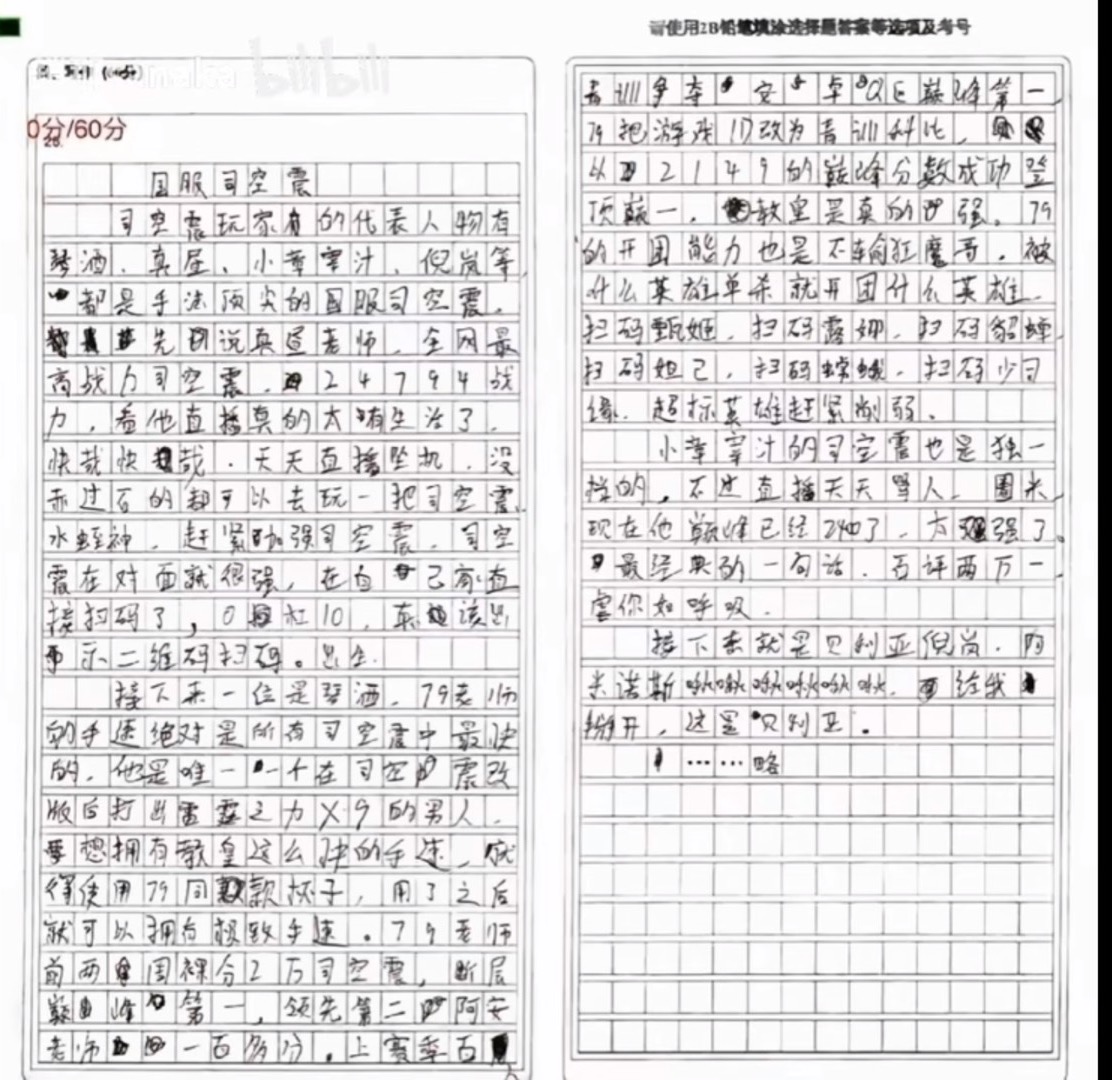 请使用2B铅笔填涂选择题答案等选项及考号
bilibili
四、写作(60分)
0分/60分
28.
国服司空震
司空震玩家的代表人物有
琴酒、真昼、小章宰汁、倪岚等,
都是手法顶尖的国服司空震。
先说真昼老师,全网最
高战力司空震,24794战
力,看他直播真的太有生活了,
快哉快哉。天天直播坠机,没
赤过石的都可以去玩一把司空震。
水蛭神,赶紧加强司空震,司空
震在对面就很强,在自己家直
接扫码了,0杠10,来该出
示二维码扫码。出生
接下来一位是琴酒,79老师
的手速绝对是所有司空震中最快
的,他是唯一一个在司空震改
版后打出雷霆之力X9的男人,
要想拥有教皇这么快的手速,就
得使用79同款杯子,用了之后
就可以拥有极致手速。79老师
前两周裸分2万司空震,断层
巅峰第一,领先第二阿安
老师一百多分。上赛季百
青川争夺安卓QE巅峰第一,
79把游戏ID改为青川糾比,
以2149的巅峰分数成功登
顶巅一,教皇是真的强。79
的开团能力也是不输狂魔哥,被
什么英雄单杀就开团什么英雄,
扫码甄姬,扫码露娜,扫码貂蝉,
扫码妲己,扫码嫦娥,扫码少司
缘,超标英雄赶紧削弱。
小章宰汁的司空震也是独一
挡的,不过直播天天骂人、圈米,
现在他巅峰已经2400了,太强了。
最经典的一句话,百评两万一,
虐你如呼吸。
接下来就是贝利亚倪岚,阿
米诺斯啾啾啾啾啾,给我
掰开,这是贝利亚。
……略